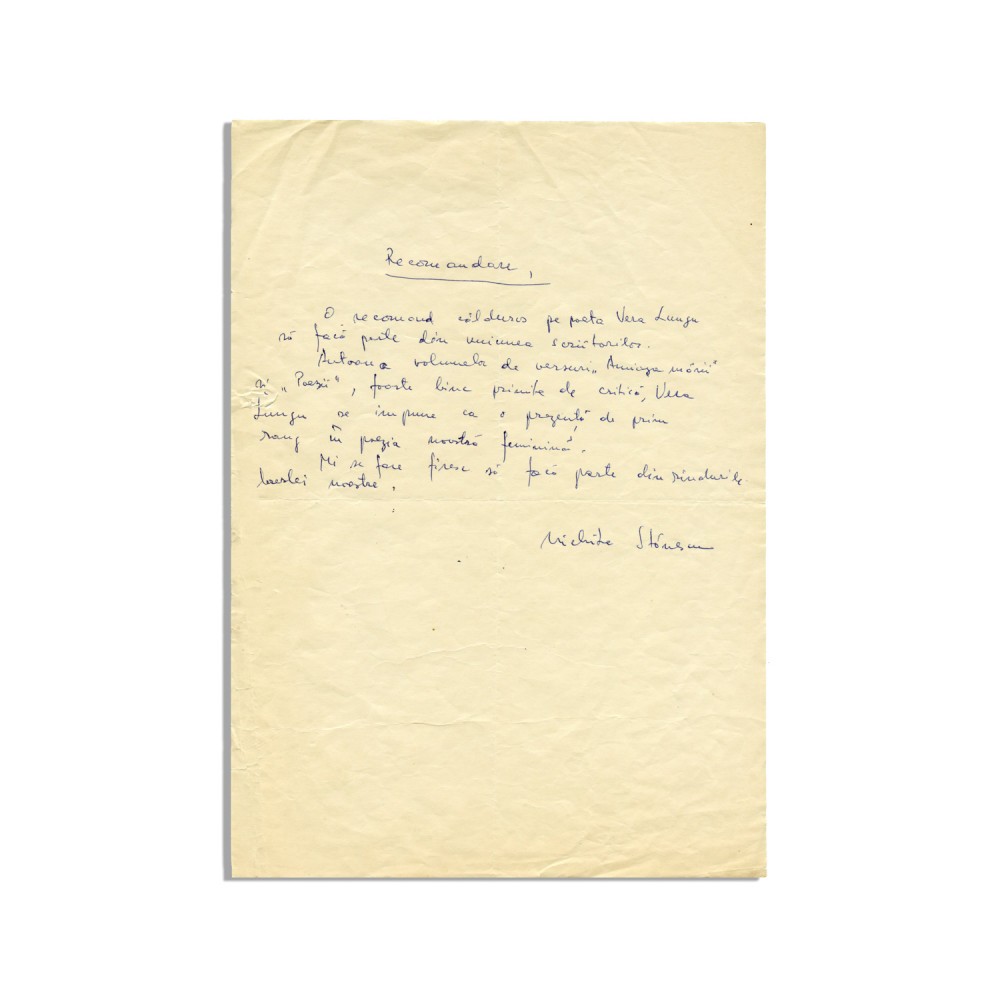 Recomandare,
O recomand călduros pe poeta Vera Lungu
să facă parte din uniunea scriitorilor.
Autoarea volumelor de versuri „Amiaza mării"
și „Poezii", foarte bine primite de critică, Vera
Lungu se impune ca o prezență de prim
rang în poezia noastră feminină.
Mi se pare firesc să facă parte din rîndurile
breslei noastre.
Nichita Stănescu